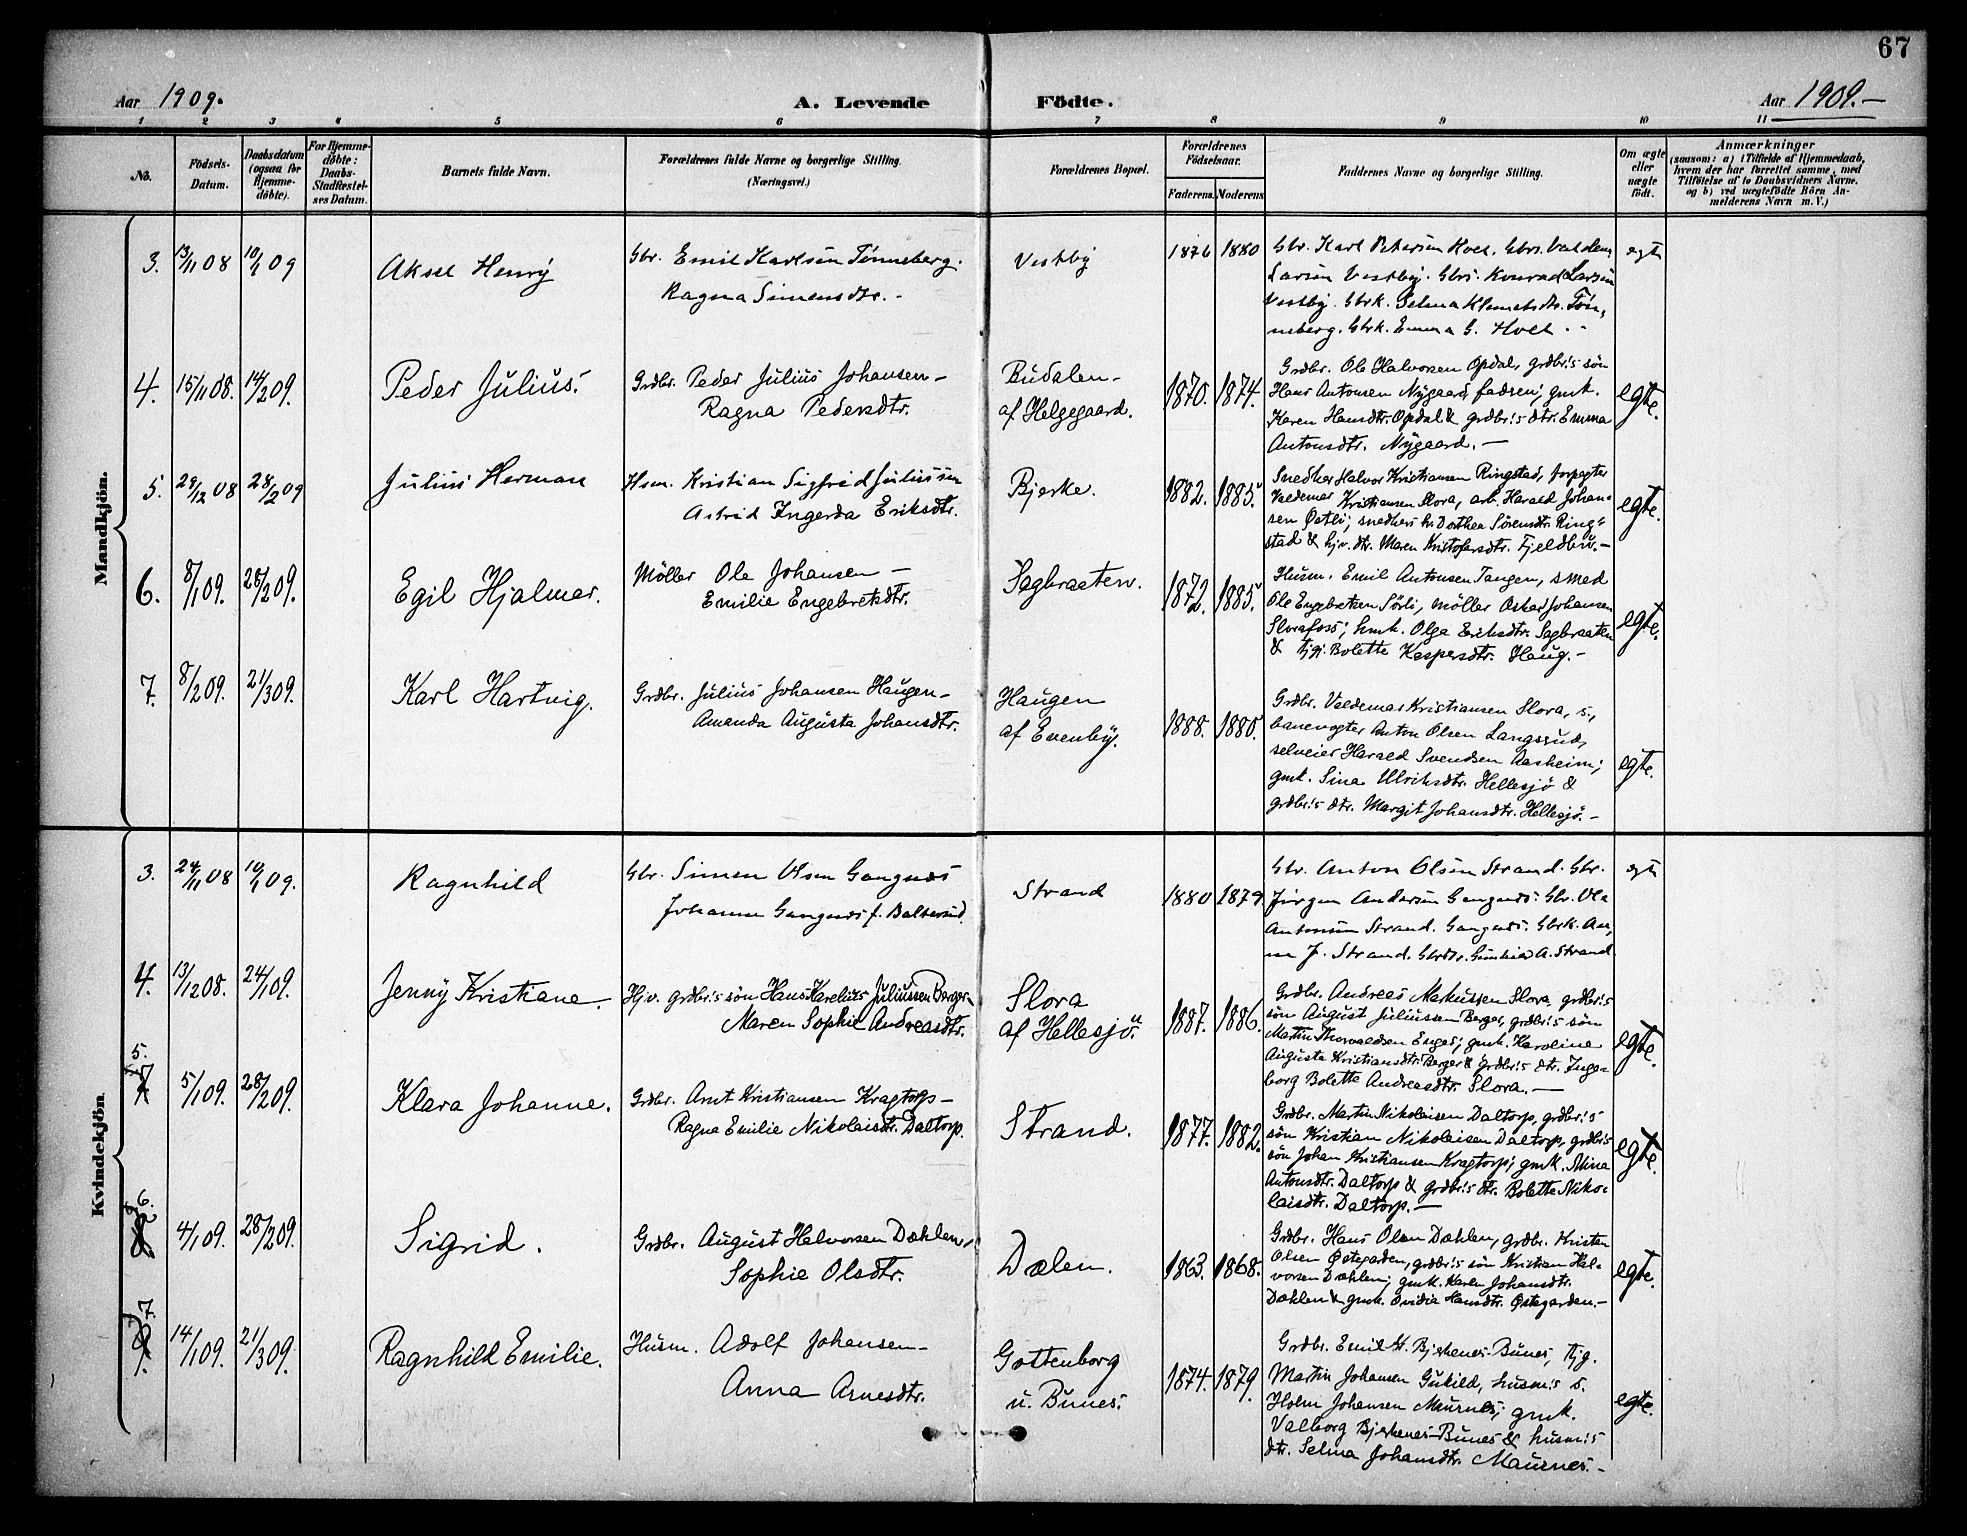 67
Aar 1909.
A. Levende Födte.
Aar 1909.-
1 2 3 4 5 6 7 8 9 10 11
No.
Födsels-Datum.
Daabsdatum (ogsaa for Hjemme-döbte).
For Hjemme-döbte: Daabs-Stadfæstelses Datum.
Barnets fulde Navn.
Forældrenes fulde Navne og borgerlige Stilling. (Næringsvei.)
Forældrenes Bopæl.
Forældrenes Födselsaar.
Faderens. Moderens
Faddernes Navne og borgerlige Stilling.
Om ægte eller uægte födt.
Anmærkninger
(saasom: a) i Tilfælde af Hjemmedaab, hvem der har forrettet samme, med Tilföielse af to Daabsvidners Navne, og b) ved uægtefödte Börn Anmelderens Navn m. V.)
Mandkjön.
3. 13/11 08 10/1 09
Aksel Henry
Gbr. Emil Karlsen Tønneberg.
Ragna Simensdtr. -
Vestby
1876 1880
Gbr. Karl Petersen Holt. Gbrs.
Larsen Vestby. Gbrs. Konrad Larsen
Vestby. Gbrk. Selma Klemetsdtr. Tön,
neberg. Gbrk. Emma G. Holt. -
egte
4. 15/11 08. 14/2 09.
Peder Julius.
Grdbr. Peder Julius Johansen-
Ragna Pedersdtr.
Budalen-
af Helgegaard.
1870. 1874.
Grdbr. Ole Halvorsen Opdal, grdbr.'s sön
Hans Antonsen Nygaard, faderen; gmk.
Karen Hansdtr. Opdal & grdbr.'s dtr. Emma
Antonsdtr. Nygaard. -
egte.
5. 29/12 08 28/2 09
Julius Herman
Hsm. Kristian Sigfred Juliussen
Astrid Ingerda Eriksdtr.
Bjerke.
1882. 1885.
Snedker Halvor Kristiansen Ringstad, forpagter
Valdemar Kristiansen Slora, arb. Harald Johan-
sen Østli; snedkers h. Dorthea Sörensdtr. Ring-
stad & hjv. dtr. Maren Kristofersdtr. Fjeldbu. -
egte.
6. 8/1 09. 28/2 09.
Egil Hjalmar.
Möller Ole Johansen -
Emilie Engebretsdtr.
Sagbraaten.
1872. 1885.
Husm. Emil Antonsen Tangen, smed
Ole Engebretsen Sörli, möller Oskar Johansen
Slorafoss; hmk. Olga Eriksdtr. Sagbraaten
& tjp. Bolette Kaspersdtr. Haug. -
egte.
7. 8/2 09. 21/3 09.
Karl Hartvig.
Grdbr. Julius Johansen Haugen-
Amanda Augusta Johansdtr.
Haugen
af Evenby.
1888. 1880.
Grdbr. Valdemar Kristiansen Slora, s.,
banevogter Anton Olsen Langsrud,
selveier Harald Svendsen Aasheim;
gmk. Sina Ulriksdtr. Hellesjö &
grdbr.'s dtr. Margit Johansdtr. Hellesjö. -
egte.
Kvindekjön.
3. 24/11 08 10/1 09.
Ragnhild
Gbr. Simen Olsen Gangnæs
Johanne Gangnæs f. Baltersrud
Strand
1880 1879
Gbr. Anton Olsen Strand. Gbr.
Jörgen Andersen Gangnæs. Gbr. Ole
Antonsen Strand. Gangnæs. Gbrk. An,
na J. Strand. Gbrdtr. A. Strand
egte
4. 13/12 08. 24/1 09.
Jenny Kristiane.
Hjv. grdbr.'s sön Hans Karelius Juliussen Berger-
Maren Sophie Andreasdtr.
Slora
af Hellesjö.
1887. 1886.
Grdbr. Andreas Markussen Slora, grdbr.'s
sön August Juliussen Berger, grdbr.'s sön
Martin Thorvaldsen Enger; gmk. Karoline
Augusta Kristiansdtr. Berger & grdbr.'s dtr. Inge-
borg Bolette Andreasdtr. Slora. -
egte.
5. 5/1 09. 28/2 09.
Klara Johanne.
Grdbr. Arnt Kristiansen Kragtorp-
Ragna Emilie Nikolaisdtr. Daltorp.
Strand.
1877. 1882.
Grdbr. Martin Nikolaisen Daltorp, grdbr.'s
sön Kristian Nikolaisen Daltorp, grdbr.'s
sön Johan Kristiansen Kragtorp; gmk. Mina
Antonsdtr. Daltorp & grdbr.'s dtr. Bolette Niko-
laisdtr. Daltorp. -
egte.
6. 4/1 09. 28/2 09.
Sigrid.
Grdbr. August Halvorsen Dæhlen,
Sophie Olsdtr.
Dælen.
1863. 1868.
Grdbr. Hans Olsen Dæhlen, grdbr. Kristen
Olsen Østegarden, grdbr.'s sön Kristian Hal-
vorsen Dæhlen; gmk. Karen Johansdtr.
Dæhlen & gmk. Ovidia Hansdtr. Østegarden. -
egte.
7. 14/1 09. 21/3 09.
Ragnhild Emilie.
Husm. Adolf Johansen-
Anna Arnesdtr.
Gottenborg
u. Bunes.
1874. 1879.
Grdbr. Emil Bjerkenes-Bunes, tjg.
Martin Johansen Gukild, husm.'s s.
Holm Johansen Maurnes; gmk.
Valborg Bjerkenes-Bunes & husm.'s
dtr. Selma Johansdtr. Maurnes. -
egte.